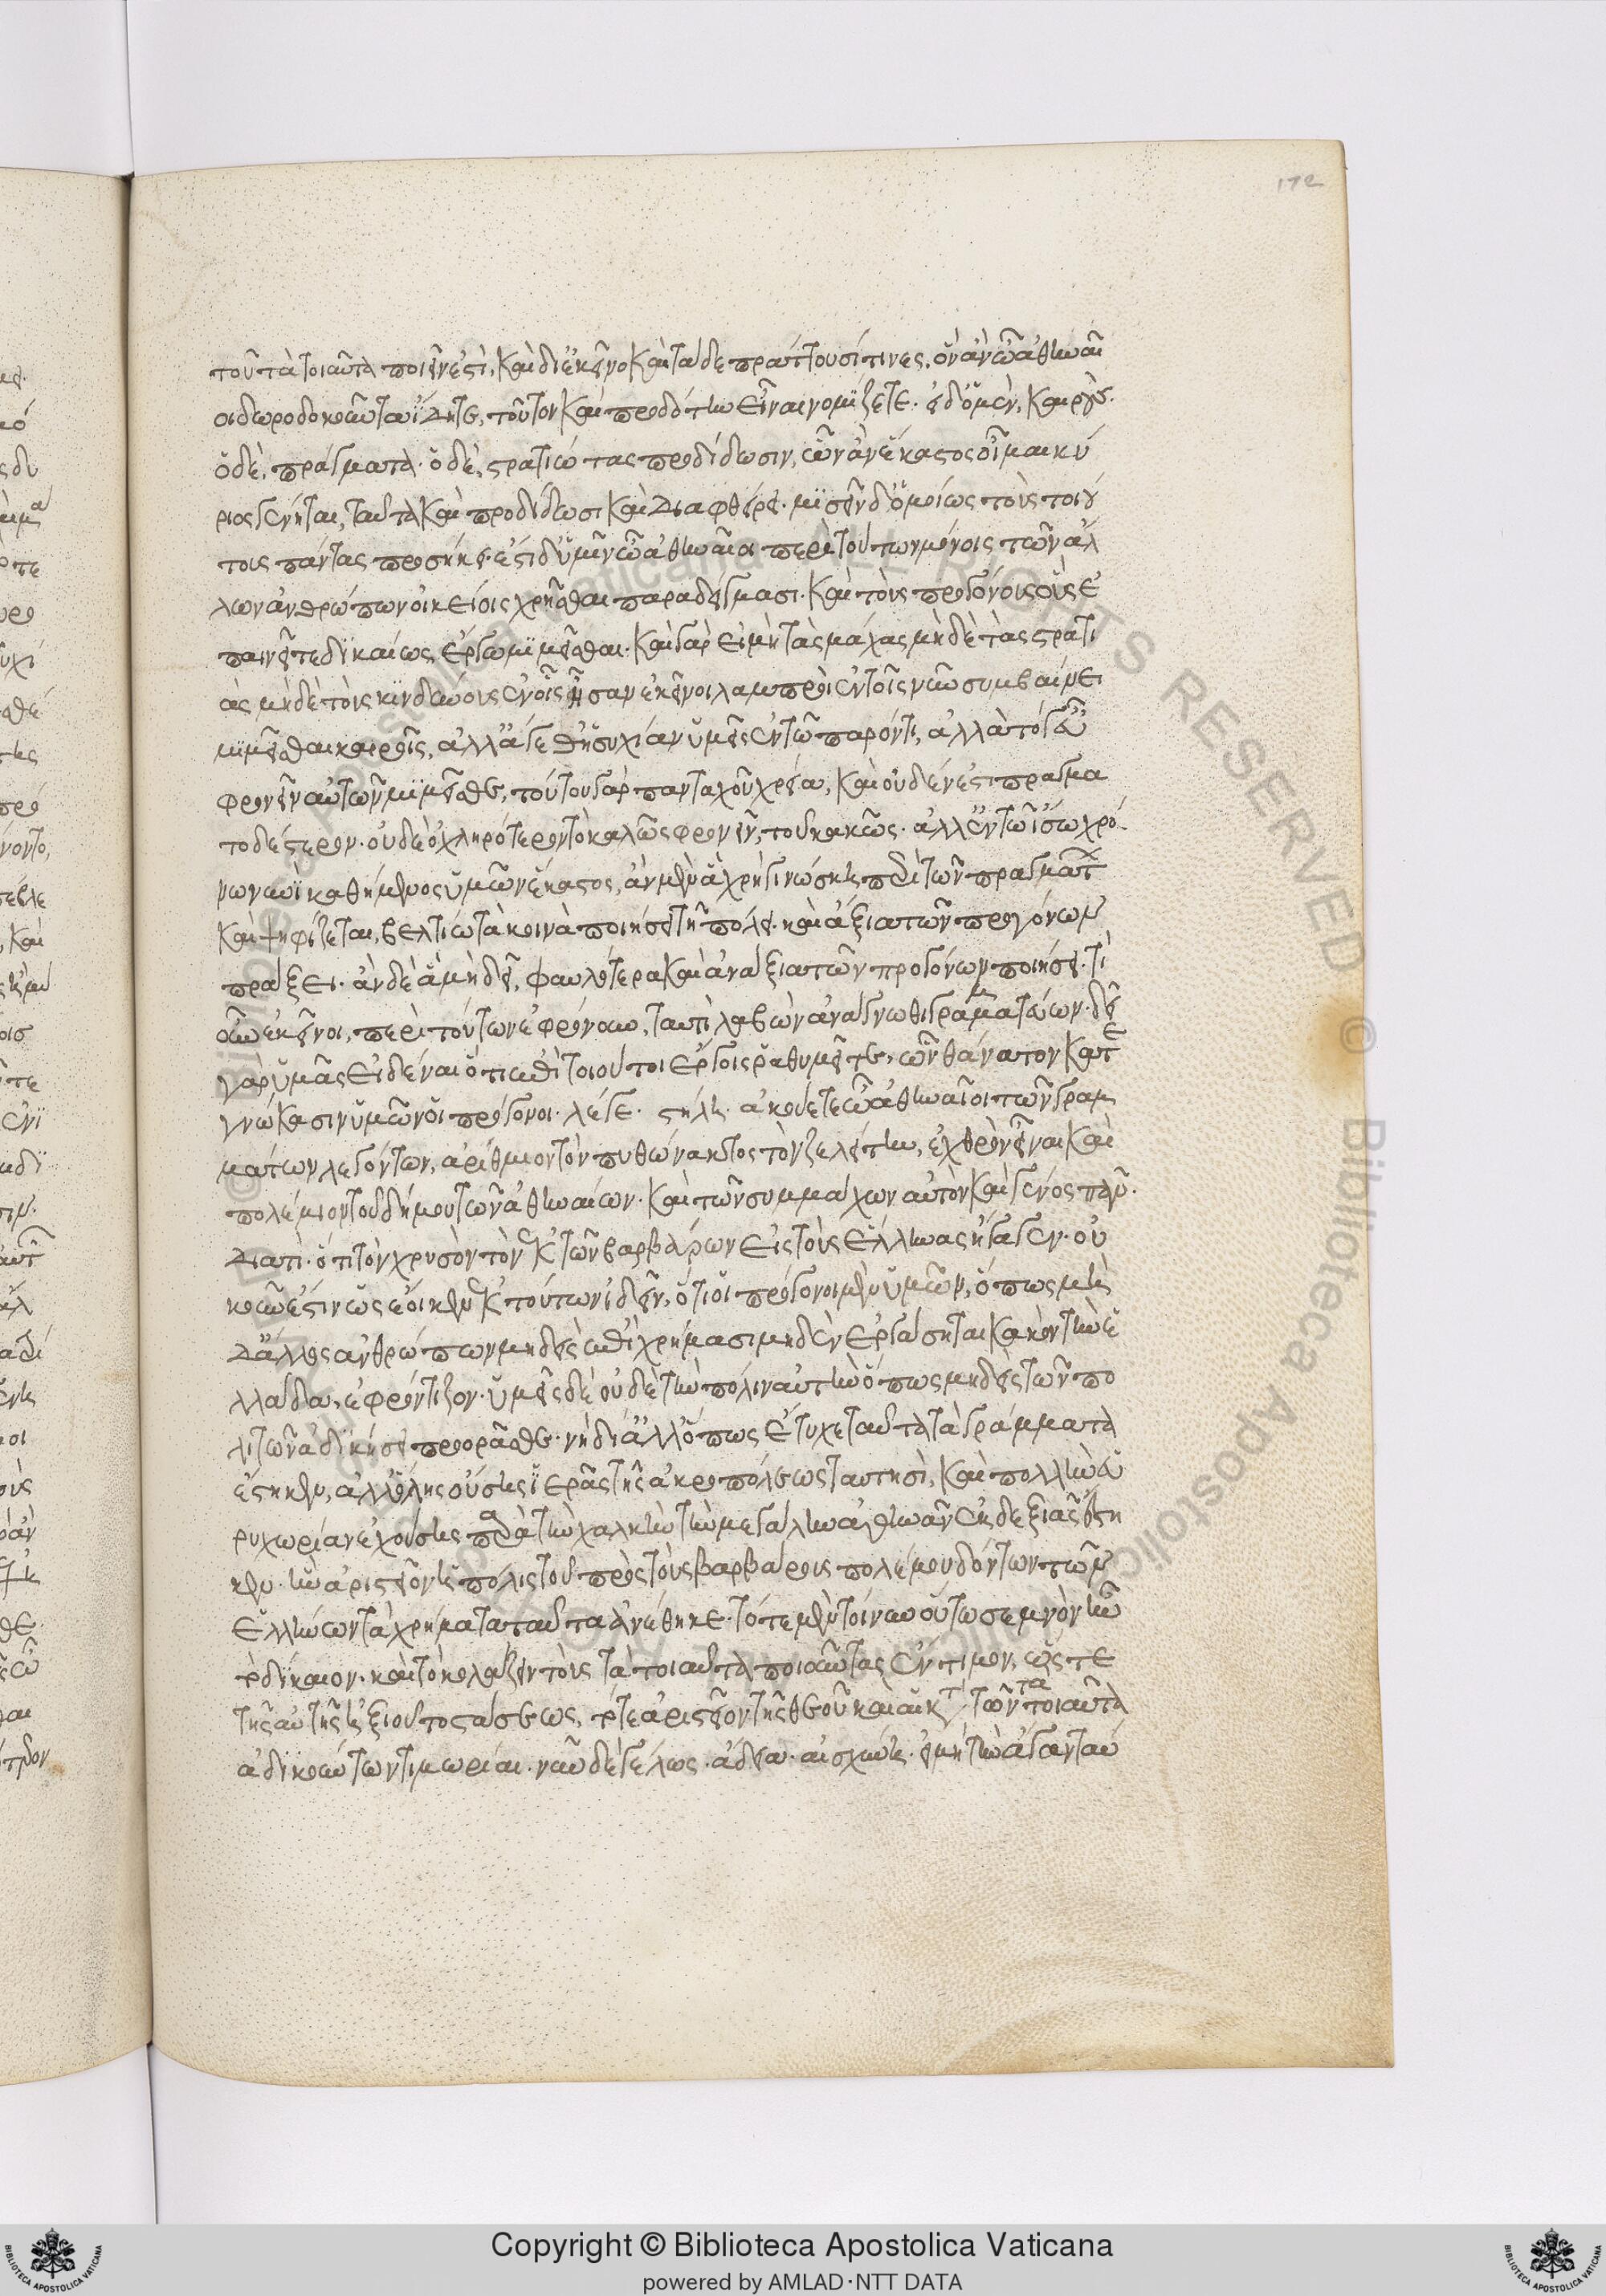 172
τοῦ τὰ τοιαῦτα ποιεῖν ἐστὶ, καὶ δι' ἐκεῖνο καὶ τάδε πράττουσί τινες. ὃν ἂν ὦ ἀθηναῖ
οι δωροδοκοῦντα ἴδητε, τοῦτον καὶ προδότην εἶναι νομίζετε. εἰ δ' ὁ μὲν, καιρὸν.
ὁ δὲ, πράγματα. ὁ δὲ, στρατιώτας προδίδωσιν, ὧν ἂν ἕκαστος οἶμαι κύ
ριος γένηται, ταῦτα καὶ προδίδωσι καὶ διαφθείρει. μισεῖν δ' ὁμοίως τοὺς τοιού
τους πάντας προσήκει. ἔστι δ' ὑμῖν ὦ ἀθηναῖοι περὶ τούτων μόνοις τῶν ἄλ
λων ἀνθρώπων οἰκείοις χρῆσθαι παραδείγμασι. καὶ τοὺς προγόνους οὓς ἐ
παινεῖτε δικαίως ἔργω μιμεῖσθαι. καὶ γὰρ εἰ μὴ τὰς μάχας μηδὲ τὰς στρατι
ὰς μηδὲ τοὺς κινδύνους ἐν οἷς ἦσαν ἐκεῖνοι λαμπροὶ ἐν τοῖς νῦν συμβαίνει
μιμεῖσθαι καιροῖς, ἀλλ' ἄγεθ' ἡσυχίαν ὑμεῖς ἐν τῶ παρόντι, ἀλλὰ τό γ' εὖ
φρονεῖν αὐτῶν μιμεῖσθε, τούτου γὰρ πανταχοῦ χρεία, καὶ οὐδέν ἐστι πρᾶγμα
οὐδὲ ὀχληρότερον τὸ καλῶς φρονεῖν, τοῦ κακῶς. ἀλλ' ἐν τῶ ἴσω χρό
νω νυνὶ καθήμενος ὑμῶν ἕκαστος, ἂν μὲν ἃ χρὴ γινώσκη περὶ τῶν πραγμάτ
καὶ ψηφίζεται, βελτίω τὰ κοινὰ ποιήσει τῆ πόλει. καὶ ἄξια τῶν προγόνων
πράξει. ἂν δὲ ἃ μὴ δεῖ, φαυλότερα καὶ ἀνάξια τῶν προγόνων ποιήσει. τί
οὖν ἐκεῖνοι, περὶ τούτων ἐφρόνουν, ταυτὶ λαβὼν ἀνάγνωθι γραμματέων. δεῖ
γὰρ ὑμᾶς εἰδέναι ὅτι ἐπὶ τοιούτοις ἔργοις ῥαθυμεῖτε, ὧν θάνατον κατε
γνώκασιν ὑμῶν οἱ πρόγονοι. λέγε. στήλη. ἀκούετε ὦ ἀθηναῖοι τῶν γραμ
μάτων λεγόντων, ἄρθμιον τὸν πυθώνακτος τὸν ζελείτην, ἐχθρὸν εἶναι καὶ
πολέμιον τοῦ δήμου τῶν ἀθηναίων. καὶ τῶν συμμάχων αὐτὸν καὶ γένος πᾶν.
διατί. ὅτι τὸν χρυσὸν τὸν ἐκ τῶν βαρβάρων εἰς τοὺς ἕλληνας ἤγαγεν. οὐ
κοῦν ἔστιν ὡς ἔοικεν ἐκ τούτων ἰδεῖν, ὅτι οἱ πρόγονοι μὲν ὑμῶν, ὅπως μὴ
δ' ἄλλος ἀνθρώπων μηδεὶς ἐπὶ χρήμασι μηδὲν ἐργάσηται κακὸν τὴν ἑ
λλάδα, ἐφρόντιζον. ὑμεῖς δὲ οὐδὲ τὴν πόλιν αὐτὴν ὅπως μηδεὶς τῶν πο
λιτῶν ἀδικήσει προορᾶσθε. νὴ δί' ἀλλ' ὅπως ἔτυχε ταῦτα τὰ γράμματα
ἕστηκεν, ἀλλ' ὅλης οὔσης ἱερᾶς τῆς ἀκροπόλεως ταυτησὶ, καὶ πολλὴν εὐ
ρυχωρίαν ἐχούσης παρὰ τὴν χαλκῆν τὴν μεγάλην ἀθηνᾶν ἐκ δεξιᾶς ἕστη
κεν. ἣν ἀριστεῖον ἡ πόλις τοῦ πρὸς τοὺς βαρβάρους πολέμου δόντων τῶν
ἑλλήνων τὰ χρήματα ταῦτα ἀνέθηκε. τότε μὲν τοίνυν οὕτω σεμνὸν ἦν
τὸ δίκαιον. καὶ τὸ κολάζειν τοὺς τὰ τοιαῦτα ποιοῦντας ἔντιμον, ὥστε
τῆς αὐτῆς ἠξιοῦτο στάσεως, τό τε ἀριστεῖον τῆς θεοῦ καὶ αἱ κατὰ τῶν τὰ τοιαῦτα
ἀδικούντων τιμωρίαι. νῦν δὲ γέλως. ἄδεια. αἰσχύνη. εἰ μὴ τὴν ἄγαν ταύ
Copyright © Biblioteca Apostolica Vaticana
powered by AMLAD·NTT DATA